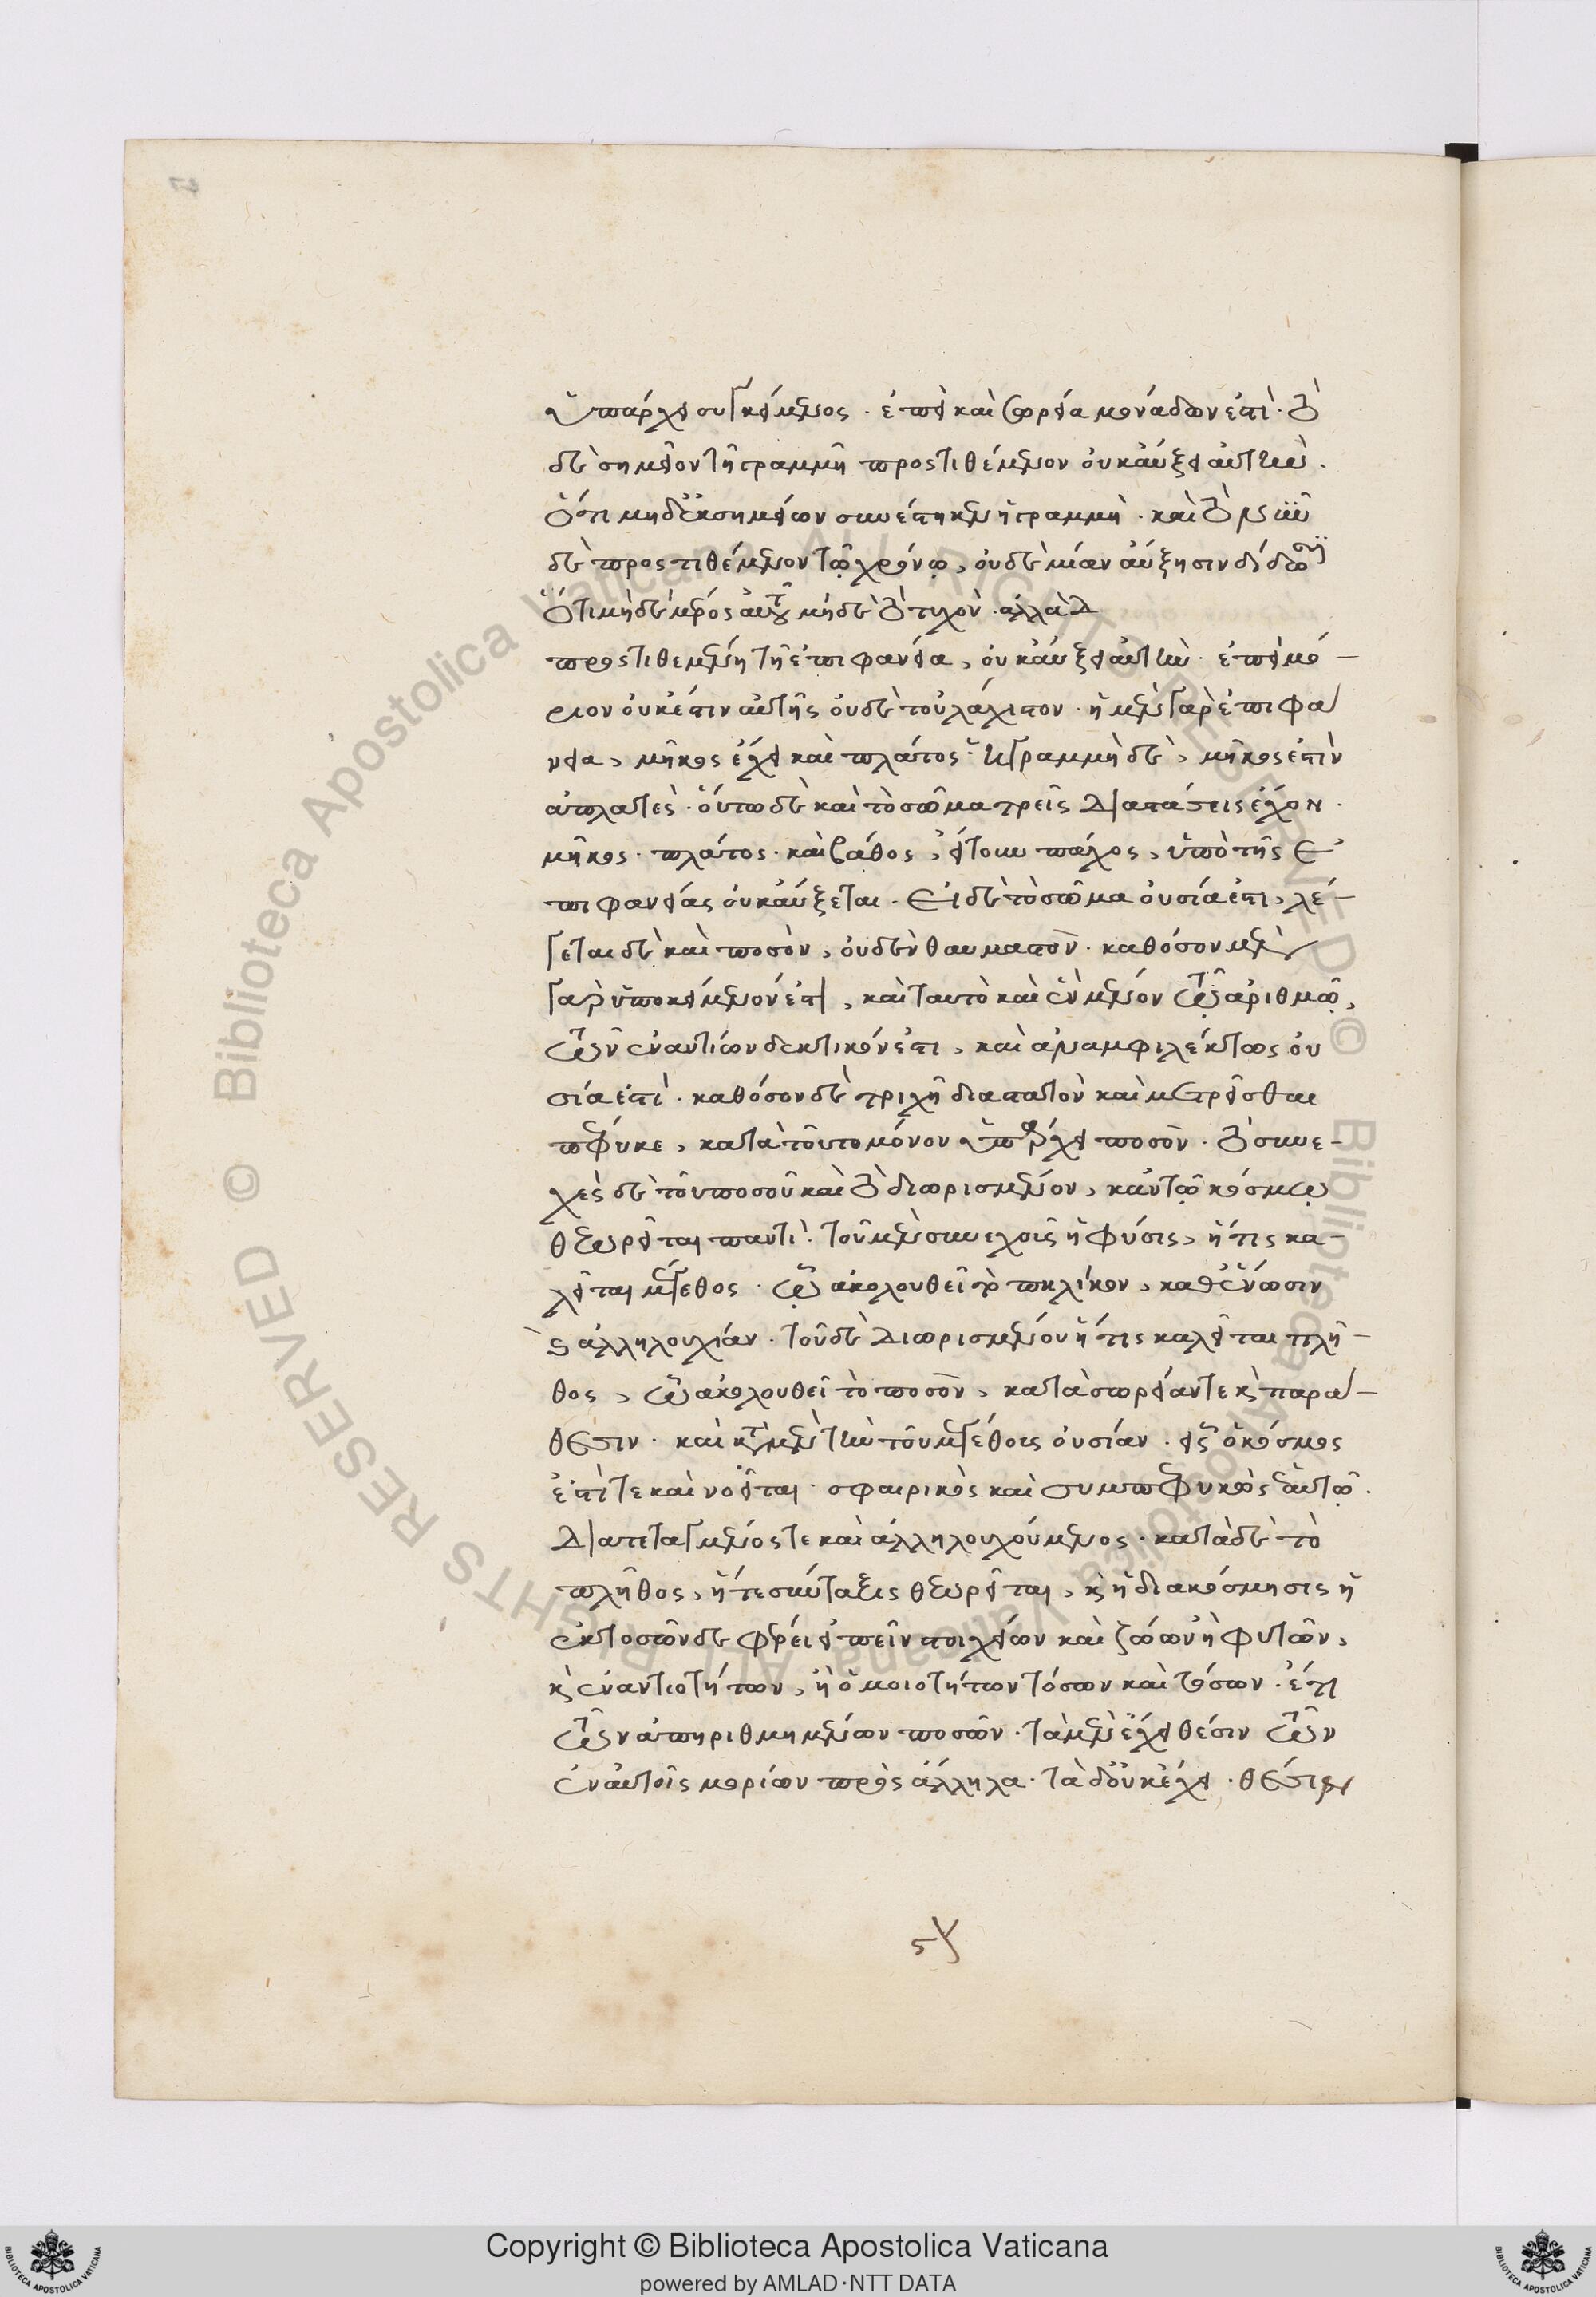 ὑπάρχει συγκείμενος. ἐπεὶ καὶ σωρεία μονάδων ἐστὶ. τὸ
δὲ σημεῖον τῇ γραμμῇ προστιθέμενον οὐκ αὔξει αὐτὴν.
ὅτι μηδ' ἐκ σημείων συνέστηκεν ἡ γραμμὴ. καὶ τὸ νῦν
δὲ προστιθέμενον τῷ χρόνῳ, οὐδὲ μίαν αὔξησιν δίδωσιν
ὅτι μὴ δὲ μέρος αὐτοῦ μήδὲ τὸ τυχὸν. ἀλλὰ
προστιθεμένη τῇ ἐπιφανεία, οὐκ αὔξει αὐτὴν. ἐπεὶ μό-
ριον οὐκ ἔστιν αὐτῆς οὐδὲ τοὐλάχιστον. ἡ μὲν γὰρ ἐπιφά
νεια, μῆκος ἔχει καὶ πλάτος. ἡ γραμμὴ δὲ, μῆκός ἐστὶν
ἀπλατὲς. οὕτω δὲ καὶ τὸ σῶμα τρεῖς διαστάσεις ἔχον.
μῆκος. πλάτος. καὶ βάθος, εἴτουν πάχος, ὑπὸ τῆς ἐ
πιφανείας οὐκ αὔξεται. Εἰ δὲ τὸ σῶμα οὐσία ἐστι, λέ-
γεται δὲ καὶ ποσὸν, οὐδὲν θαυμαστὸν. καθόσον μὲν
γὰρ ὑποκείμενόν ἐστι, καὶ ταυτὸ καὶ ἓν μένον τῷ ἀριθμῷ,
τῶν ἐναντίων δεκτικόν ἐστι, καὶ ἀναμφιλέκτως οὐ
σία ἐστὶ. καθόσον δὲ τριχῆ διαστατὸν καὶ μετρεῖσθαι
πέφυκε, κατὰ τοῦτο μόνον ὑπάρχει ποσὸν. τὸ συνε-
χὲς δὲ τοῦ ποσοῦ καὶ τὸ διωρισμένον, κἀν τῷ κόσμῳ
θεωρεῖται παντὶ. τοῦ μὲν συνεχοῦς ἡ φύσις, ἥτις κα-
λεῖται μέγεθος. ᾧ ἀκολουθεῖ τὸ πηλίκον, καθ' ἕνωσιν
καὶ ἀλληλουχίαν. τοῦ δὲ διωρισμένου ἥτις καλεῖται πλῆ-
θος, ᾧ ἀκολουθεῖ τὸ ποσὸν, κατὰ σωρείαν τε καὶ παρά-
θεσιν. καὶ κατὰ μὲν τὴν τοῦ μεγέθους οὐσίαν. εἷς ὁ κόσμος
ἐστί τε καὶ νοεῖται. σφαιρικὸς καὶ συμπεφυκὼς ἑαυτῷ.
διατεταγμένος τε καὶ ἀλληλουχούμενος. κατὰ δὲ τὸ
πλῆθος, ἥ τε σύνταξις θεωρεῖται, καὶ ἡ διακόσμησις ἡ
ἐκ τοσῶνδε φέρει εἰπεῖν στοιχείων καὶ ζώων ἢ φυτῶν,
καὶ ἐναντιοτήτων, ἢ ὁμοιοτήτων τόσων καὶ τόσων. ἔτι
τῶν ἀπηριθμημένων ποσῶν. τὰ μὲν ἔχει θέσιν τῶν
ἐν αὐτοῖς μορίων πρὸς ἄλληλα. τὰ δ' οὐκ ἔχει. θέσιν